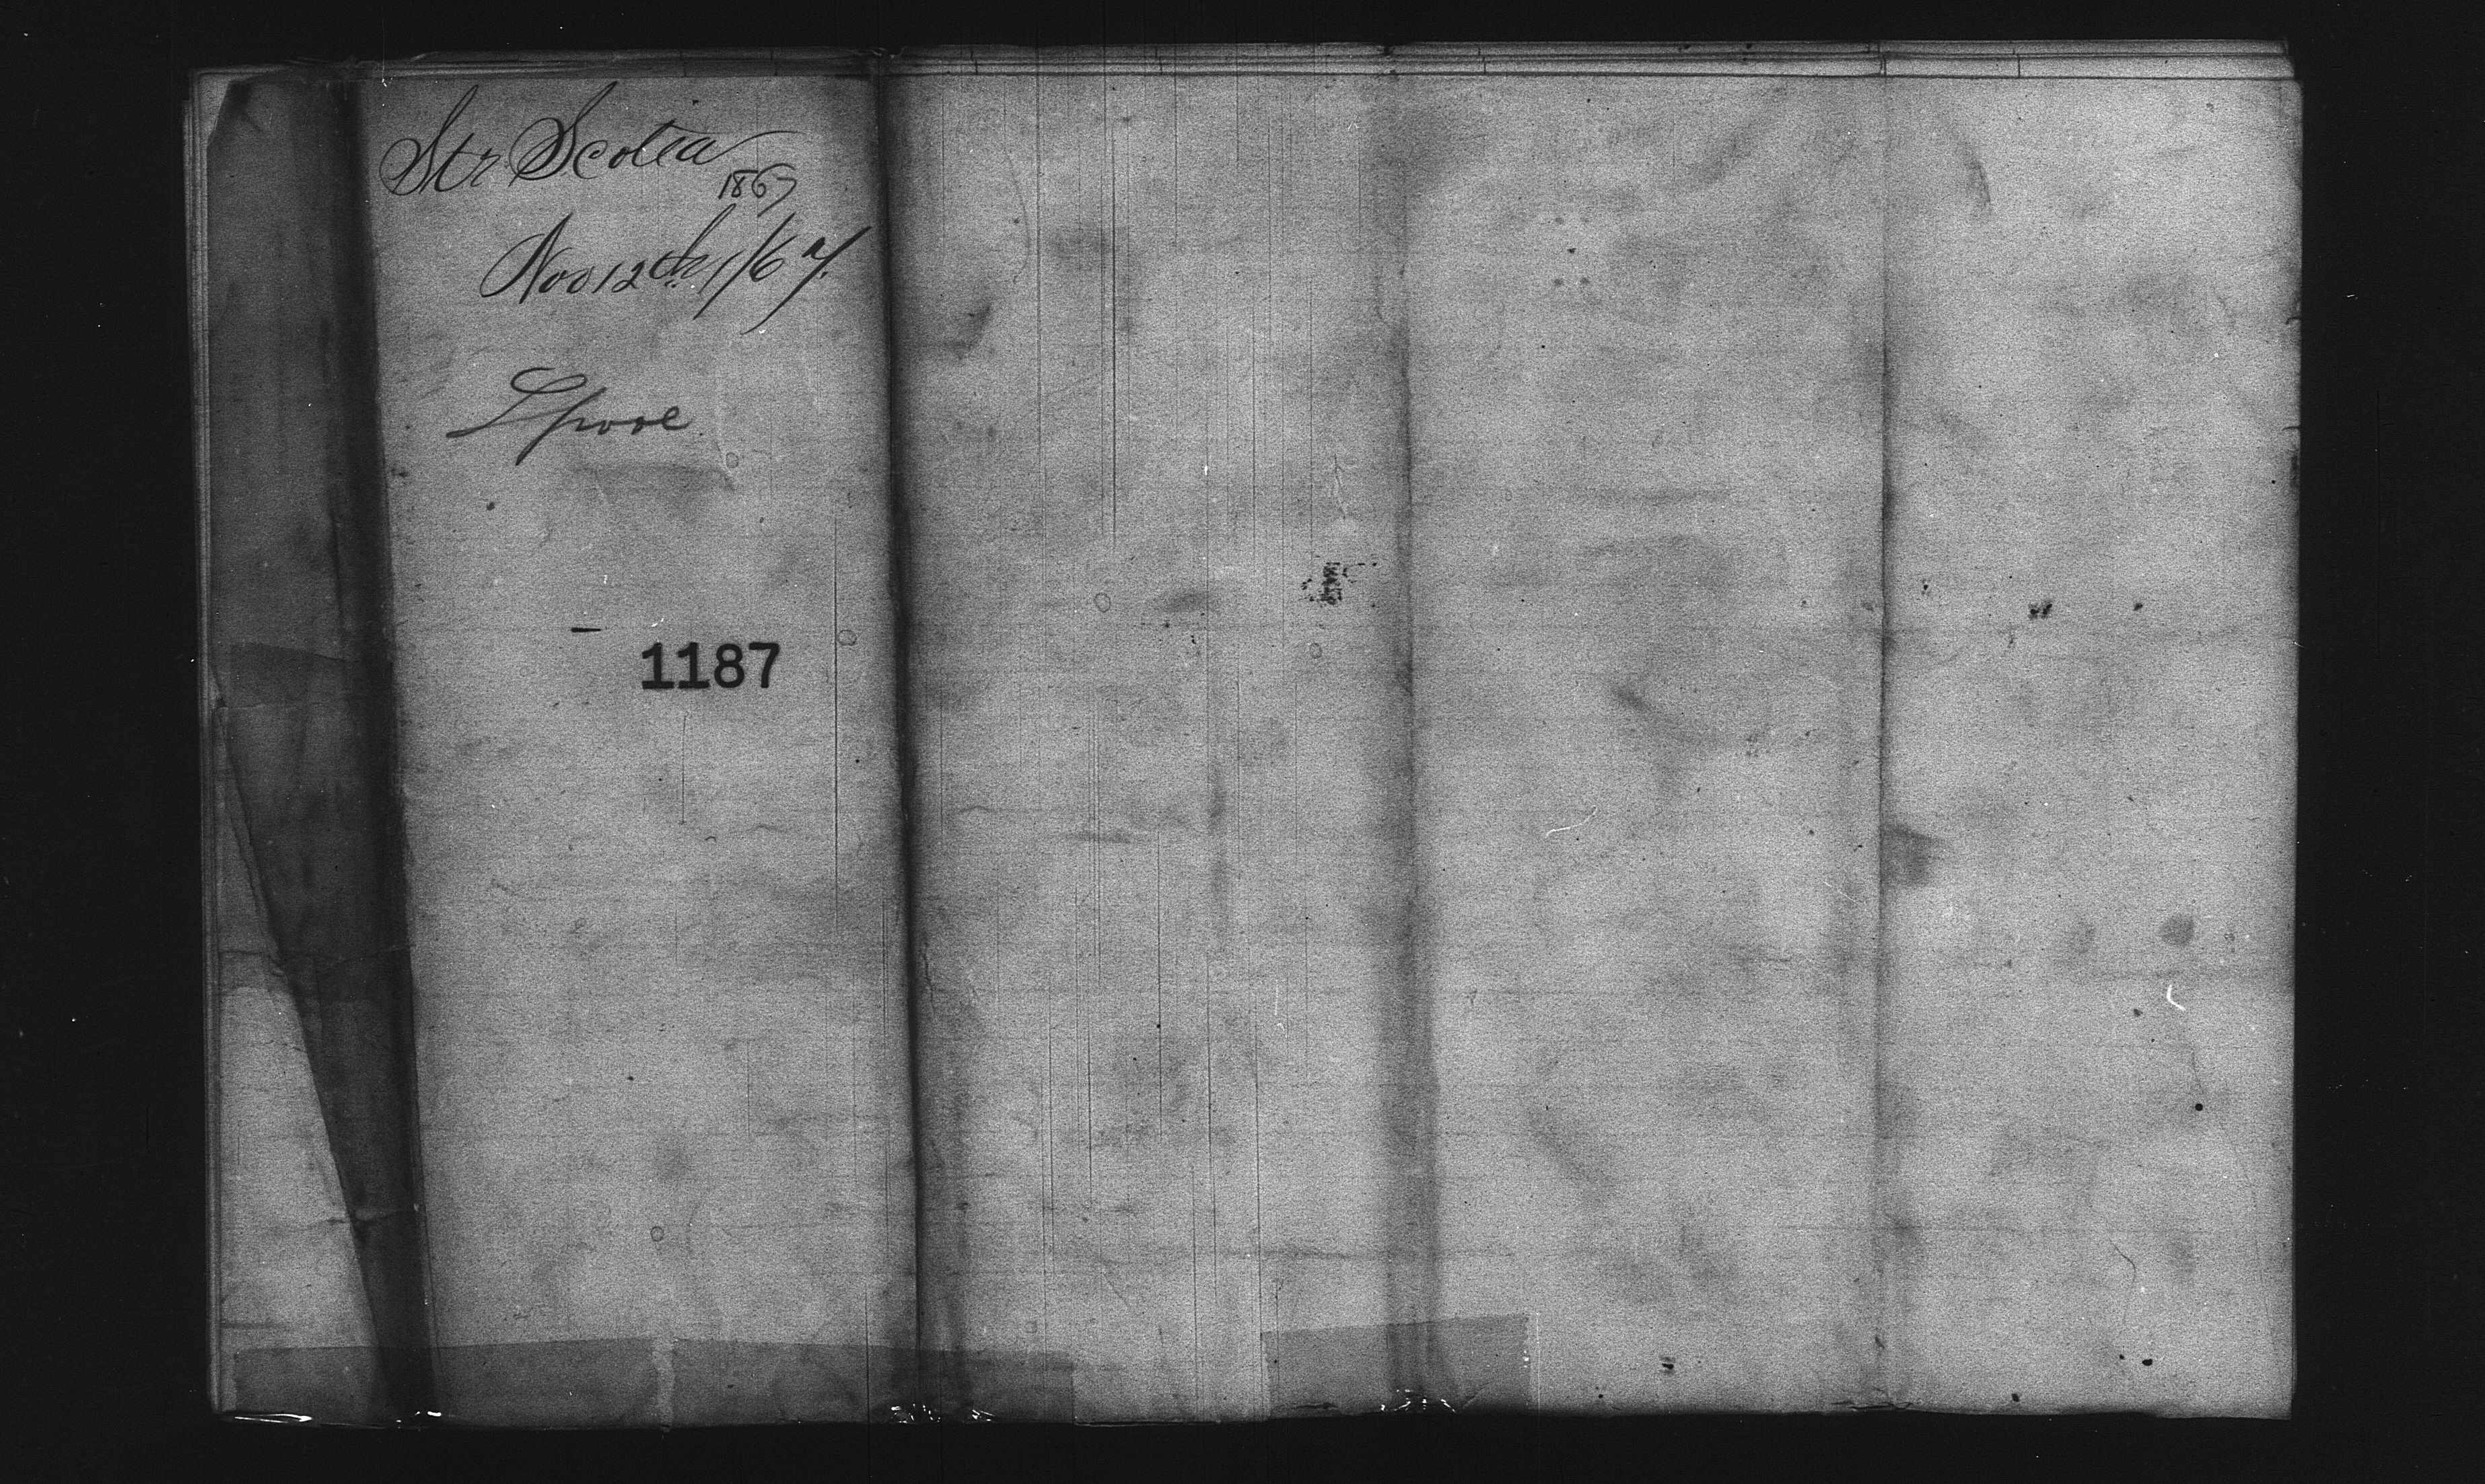 Str Scotia
1867
Nov 12th 1/67.
Lpool
1187